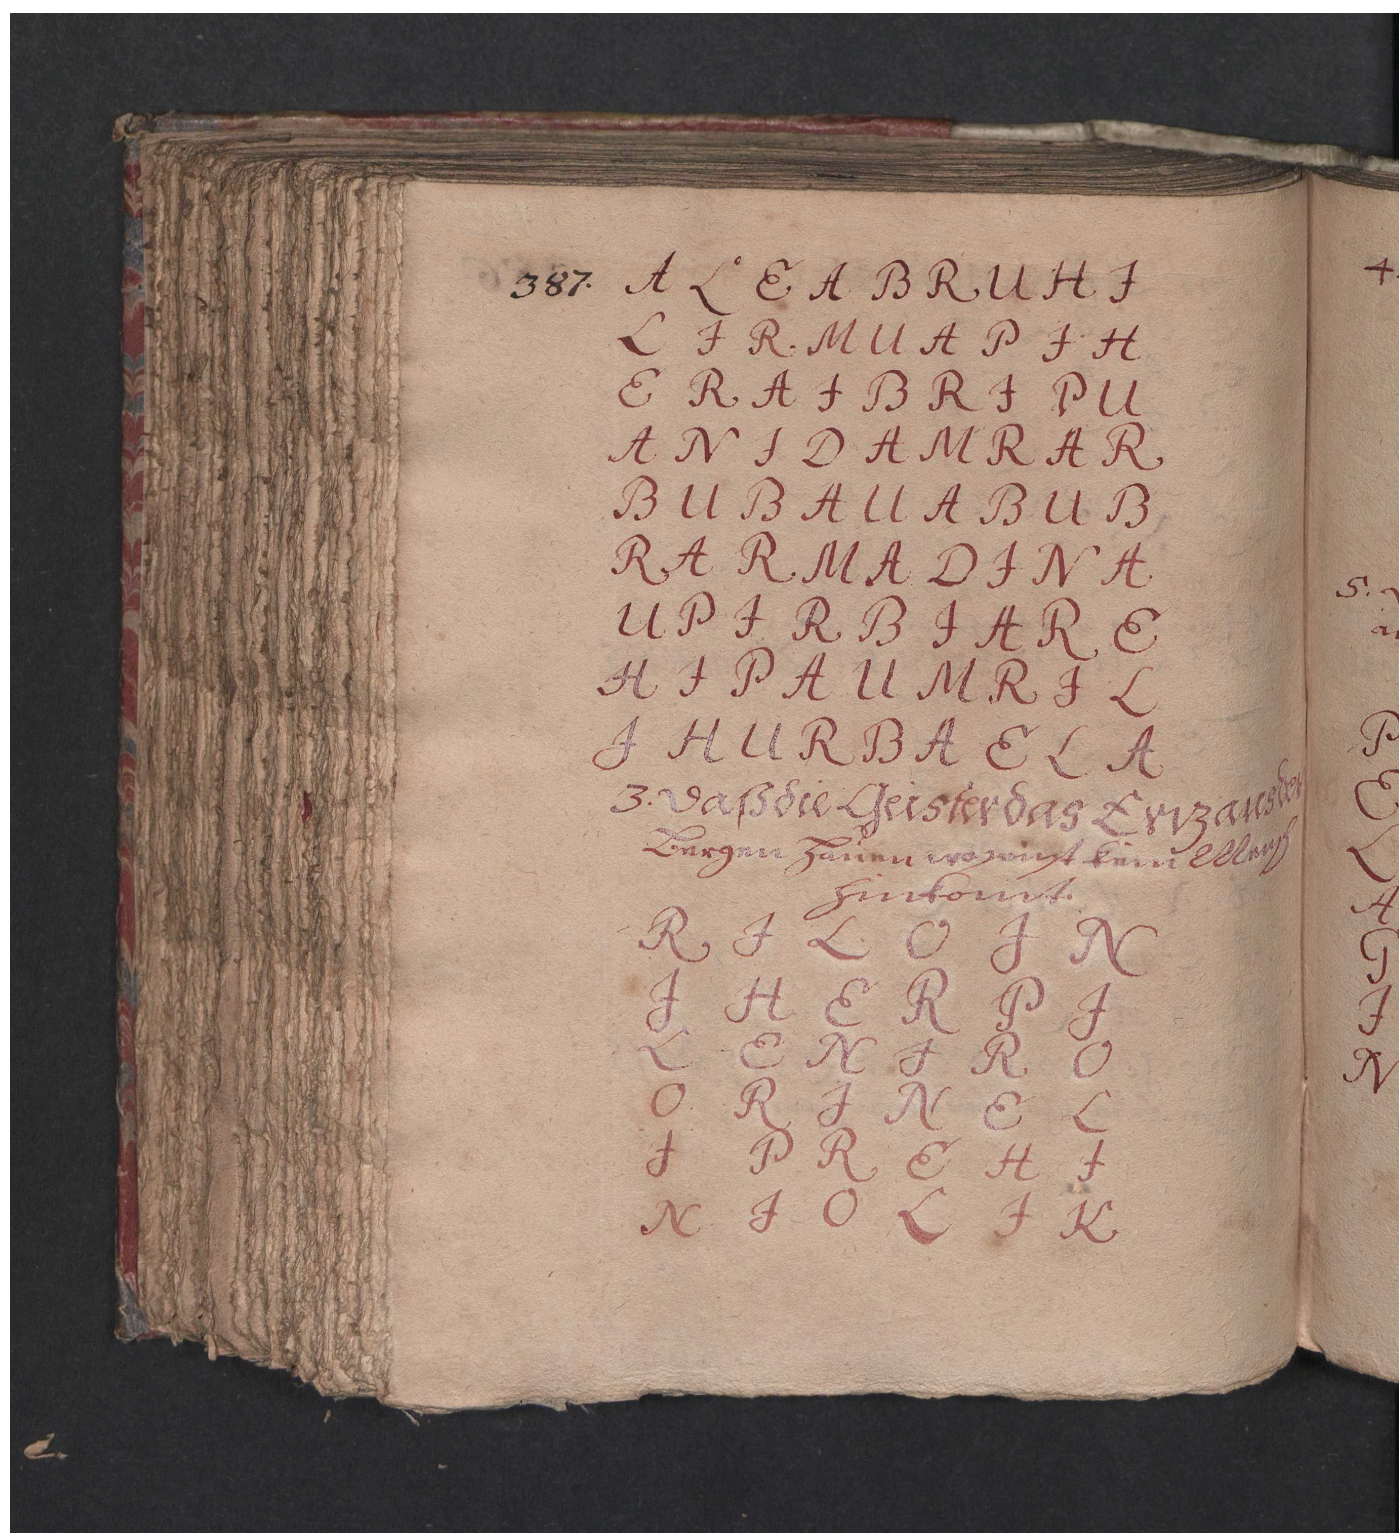 387. A L E A B R U H I
L I R M U A P I H
E R A I B R I P U
A N I D A M R A R
B U B A U A B U B
R A R M A D I N A
U P I R B I A R E
H I P A U M R I L
I H U R B A E L A
3. Daß die Geister das Ertz aus der
Bergen hauen wo sonst kein Mensch
hinkomt.
R I L O I N
I H E R P I
L E N I R O
O R I N E L
I P R E H I
N I O L I K
4.
5.
P
E
L
A
G
I
N